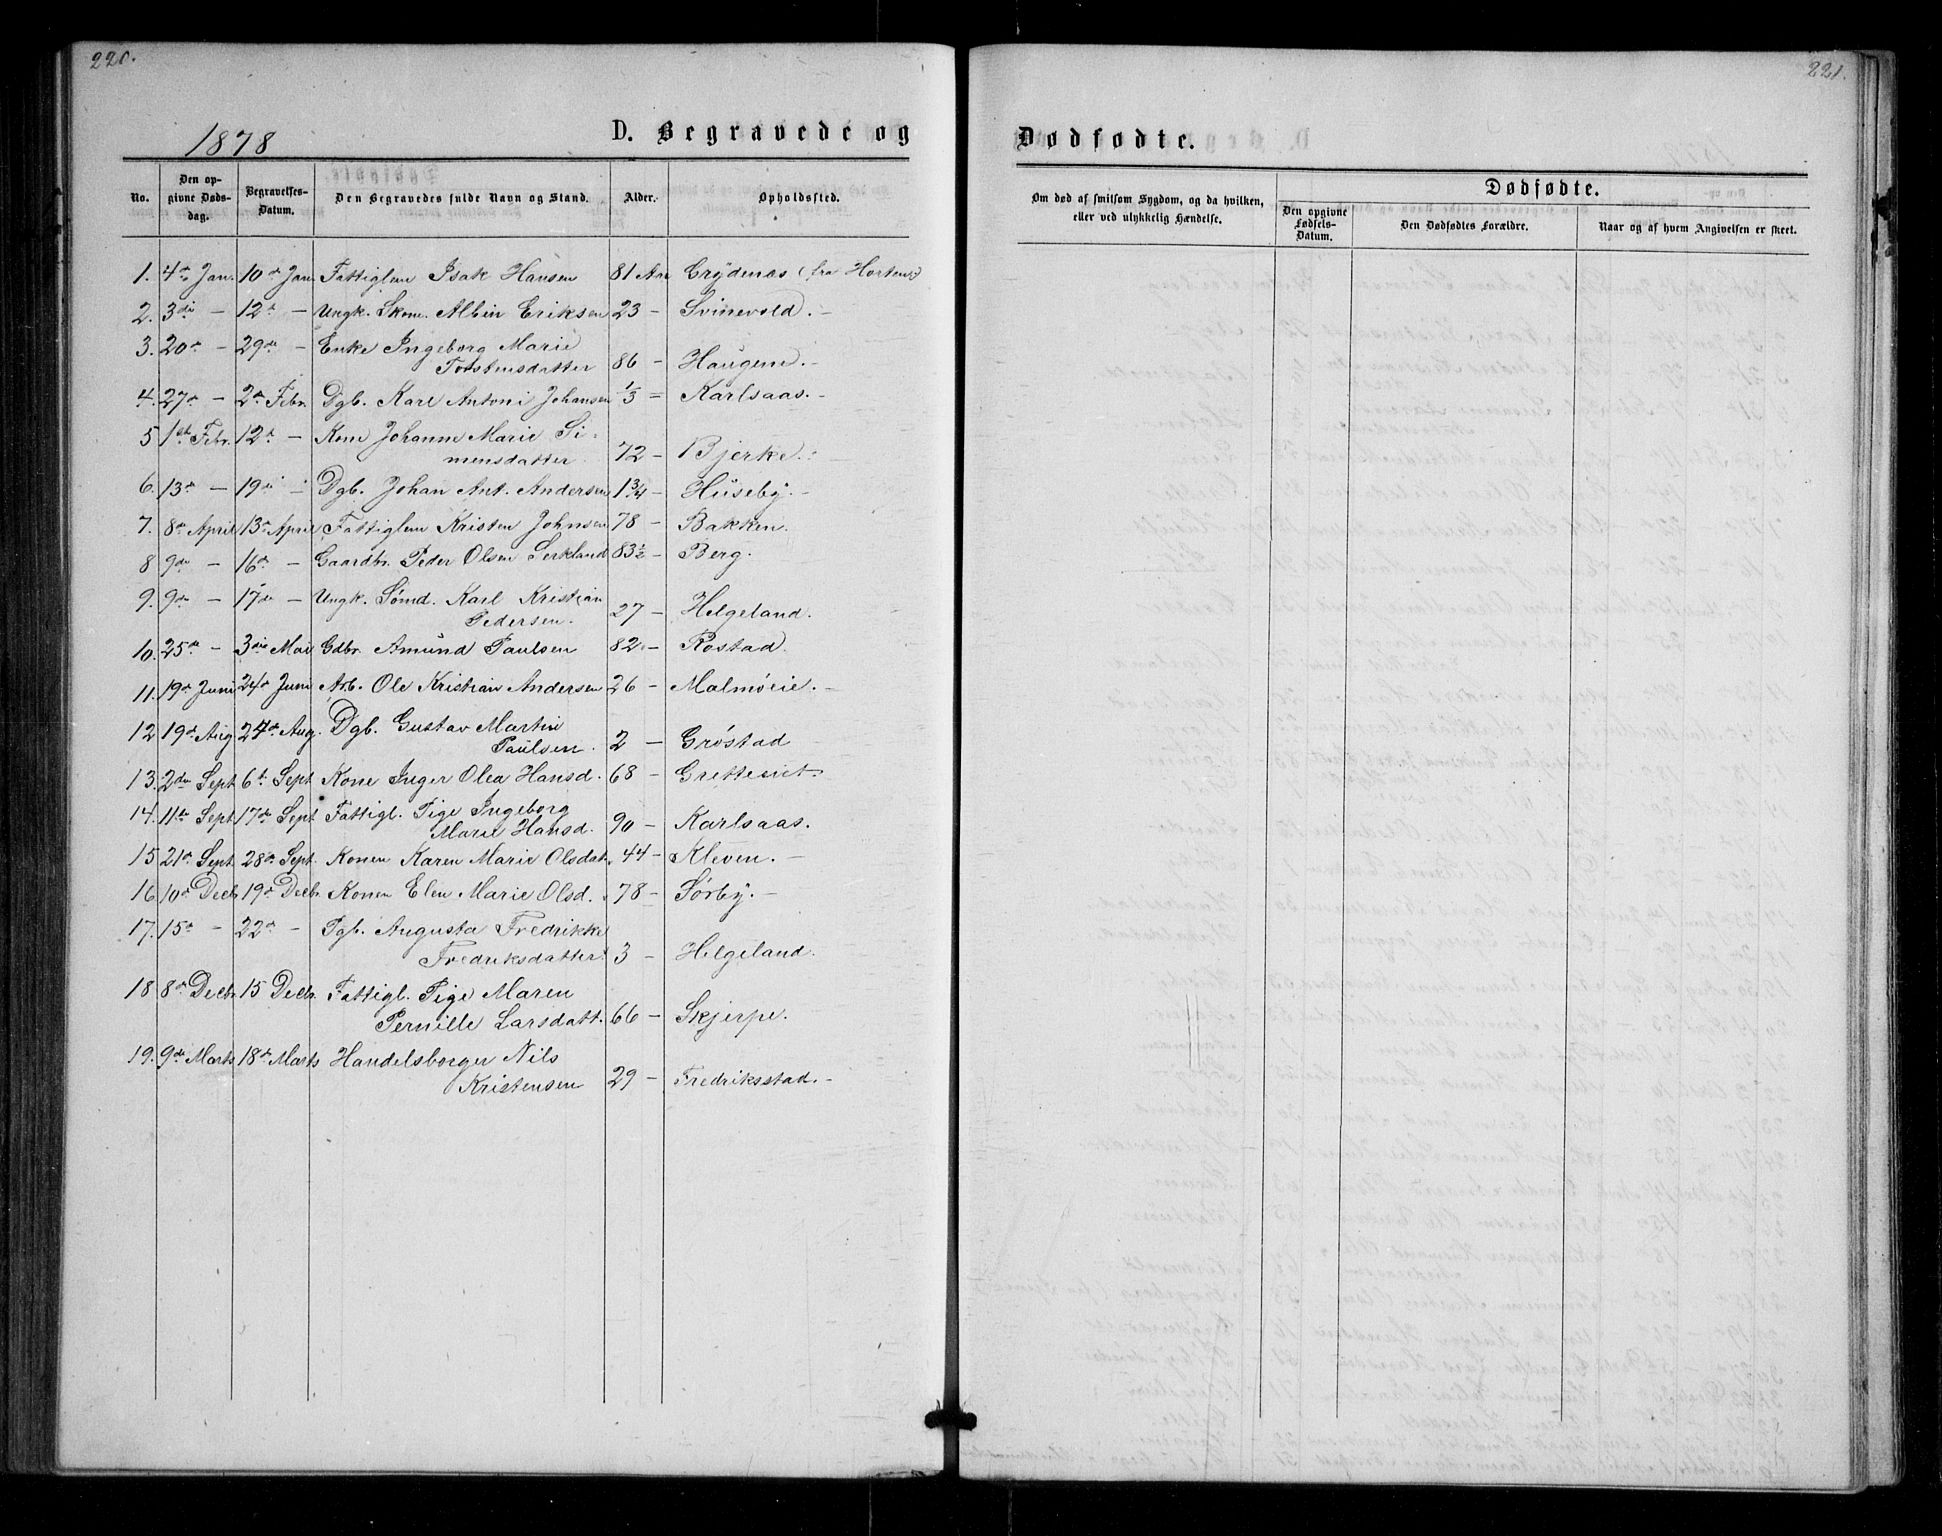 220.
1878
D. Begravede og
No.
Den op-
givne Døds-
dag.
Begravelses-
Datum.
Den Begravedes fulde Navn og Stand.
Alder.
Opholdssted.
1. 4de Jan. 10de Jan. Fattiglem Isak Hansen 81 Aar Crydenæs (fra Horten)
2. 3die — 12te — Ungk. Skom. Albin Eriksen 23 — Svinevold. —
3. 20de — 29de — Enke Ingeborg Marie
Torstensdatter 86 — Haugene. —
4. 27de — 2den Febr. Dgb. Karl Antoni Johansen 1/3 = Karlsaas. —
5 1ste Febr. 12te — Kone Johanne Marie Si-
mensdatter 72 — Bjerke. —
6. 13de — 19de — Dgb. Johan Ant. Andersen 1 3/4 — Huseby. —
7. 8de April 13de April Fattiglem Kristen Johnsen 78 — Bakken.
8 9de — 16de — Gaardbr. Peder Olsen Serkland 83 1/2 — Berg.
9. 9de — 17de — Ungk. Sømd. Karl Kristian
Pedersen. 27 — Helgeland.
10. 25de — 3die Mai Gdbr. Amund Paulsen 82 — Rostad.
11. 19de Juni 24de Juni Arb. Ole Kristian Andersen 26 — Malmøeie. —
12 19de Aug. 24de Aug. Dgb. Gustav Martin
Paulsen. 2 — Grøstad
13. 2den Sept. 6te Sept. Kone Inger Olea Hansd. 68 — Gretteeiet
14. 11te Sept. 17de Sept. Fattigl. Pige Ingeborg
Marie Hansd. 90 — Karlsaas.
15 21de Sept. 28de Sept. Konen Karen Marie Olsdat. 44 — Kleven. —
16 10de Decb. 19de Decbr. Konen Elen Marie Olsd. 78 — Sørby. —
17. 15de — 22de — Pgb. Augusta Fredrikke
Fredriksdatter 3 — Helgeland.
18 8de Decbr. 15 Decbr. Fattigl. Pige Maren
Pernille Larsdatt. 66 — Skjerpe.
19. 9de Marts 18de Marts Handelsborger Nils
Kristensen 29 — Fredriksstad. —
221.
Dødfødte.
Om død af smitsom Sygdom, og da hvilken,
eller ved ulykkelig Hændelse.
Dødfødte.
Den opgivne
Fødsels-
Datum.
Den Dødfødtes Forældre.
Naar og af hvem Angivelsen er skeet.